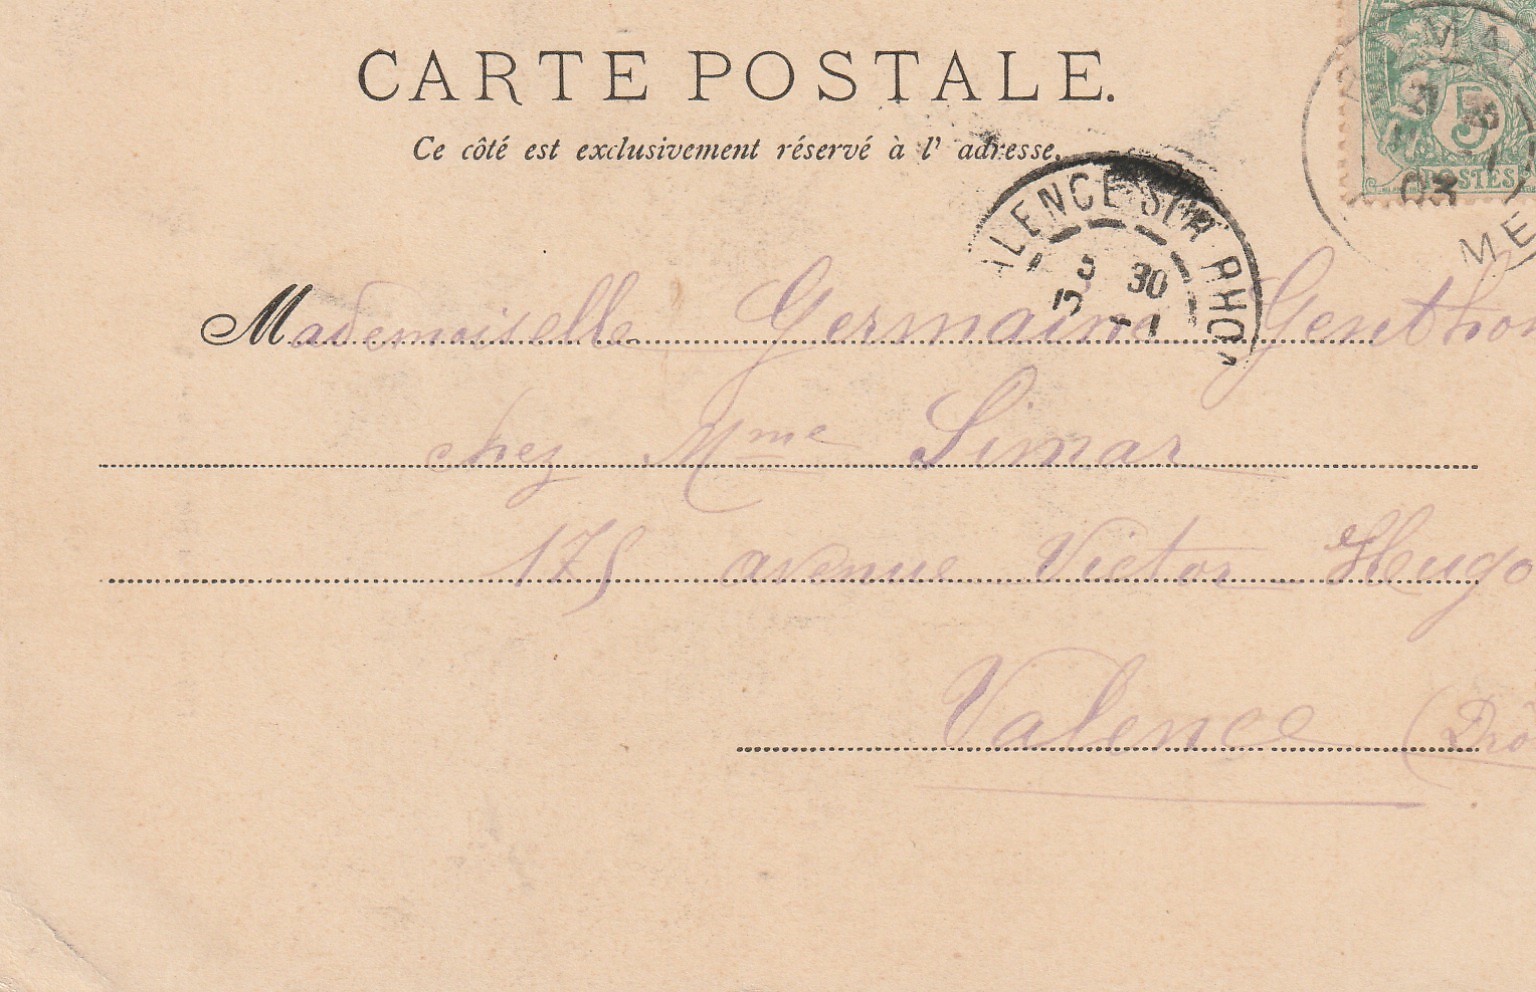 CARTE POSTALE.
Ce côté est exclusivement réservé à l' adresse.
ALENCE SUR RHO
5 30
5 -1
5
POSTES
03
ME
Mademoiselle Germaine Genthon
chez Mme Simar
175 avenue Victor-Hugo
Valence (Drô